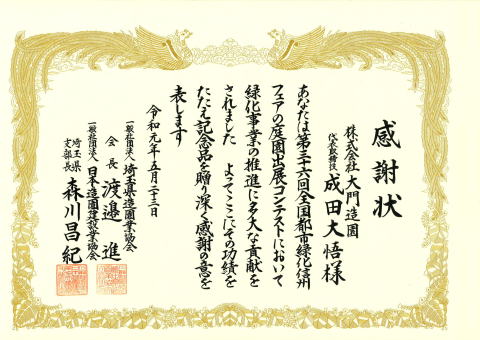 感謝状
株式会社 大門造園
代表取締役 成田大悟様
あなたは第三十六回全国都市緑化信州
フェアの庭園出展コンテストにおいて
緑化事業の推進に多大な貢献を
されました よってここにその功績を
たたえ記念品を贈り深く感謝の意を
表します
令和元年五月二十三日
一般社団法人 埼玉県造園業協会
会長 渡邉 進
一般社団法人 日本造園建設業協会
埼玉県支部長 森川昌紀